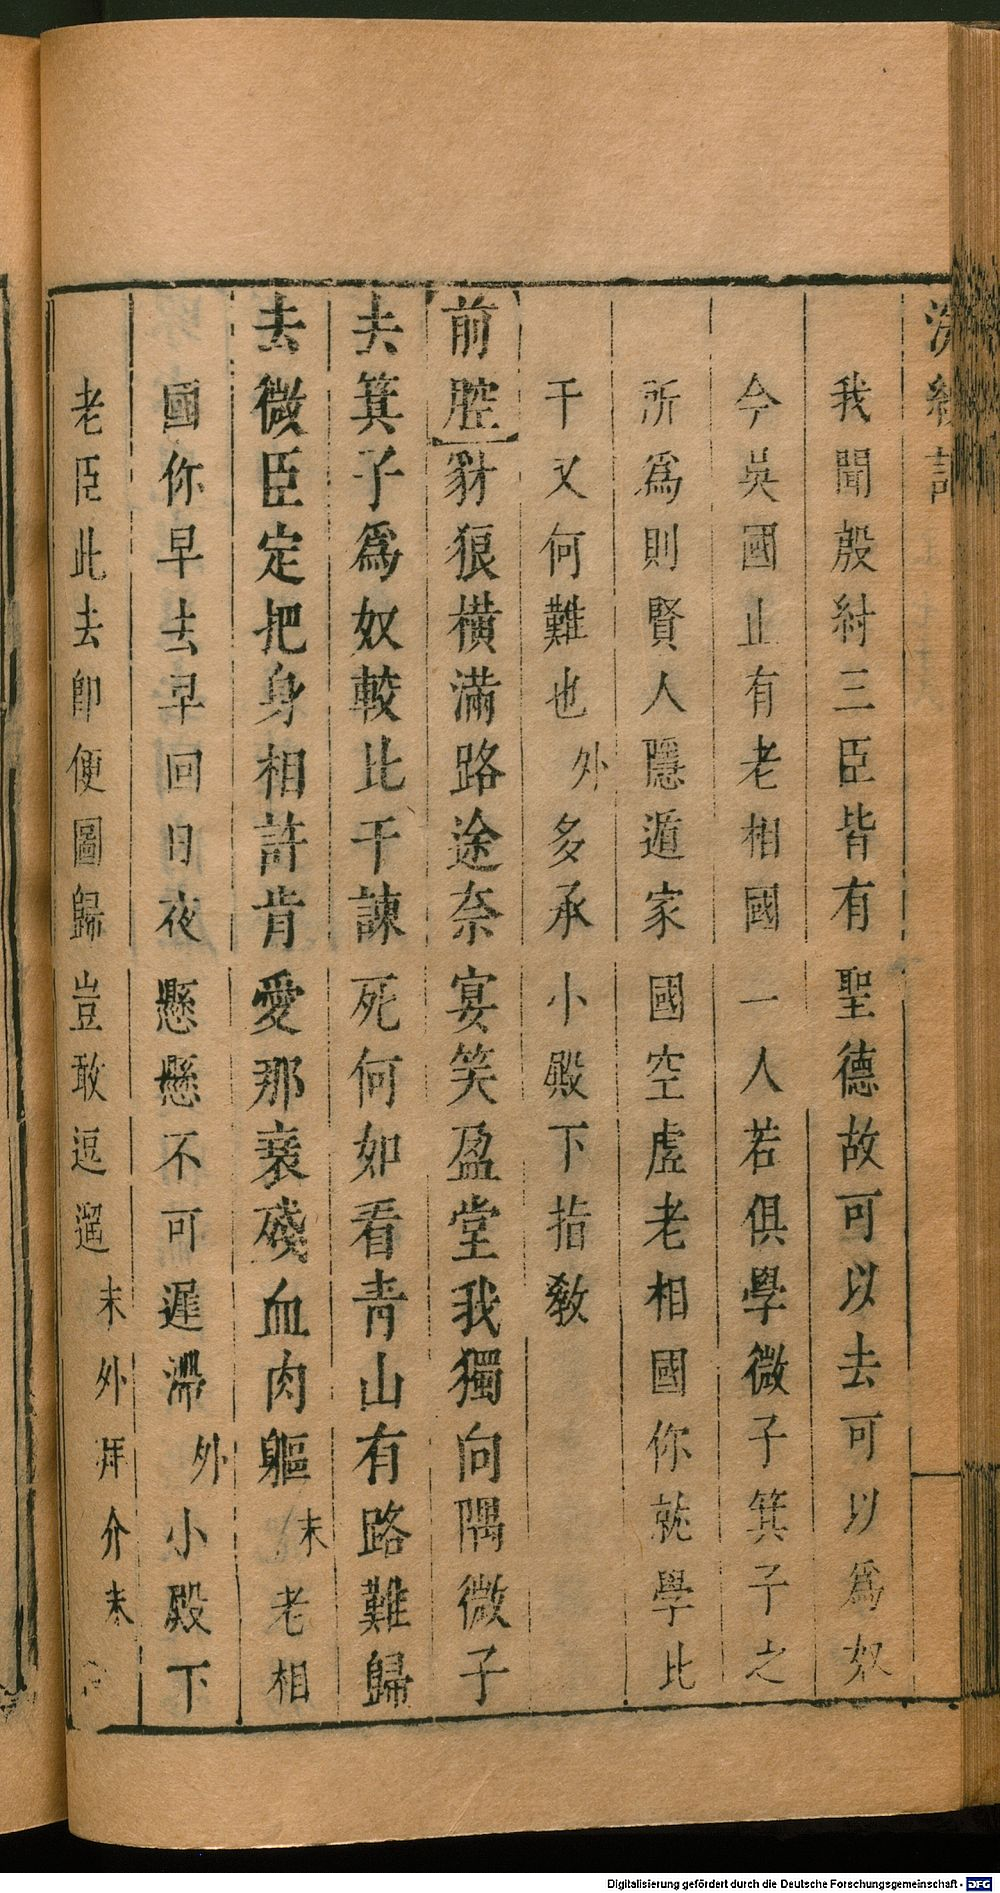 浣紗記
我聞殷紂三臣皆有聖德故可以去可以爲奴
今吳國止有老相國一人若俱學微子箕子之
所爲則賢人隱遁家國空虛老相國你就學比
干又何難也外多承小殿下指敎
前腔豺狼橫滿路途奈宴笑盈堂我獨向隅微子
去箕子爲奴較比干諫死何如看青山有路難歸
去微臣定把身相許肯愛那衰殘血肉軀末老相
國你早去早回日夜懸懸不可遲滯外小殿下
老臣此去卽便圖歸豈敢逗遛末外拜介末
Digitalisierung gefördert durch die Deutsche Forschungsgemeinschaft - DFG